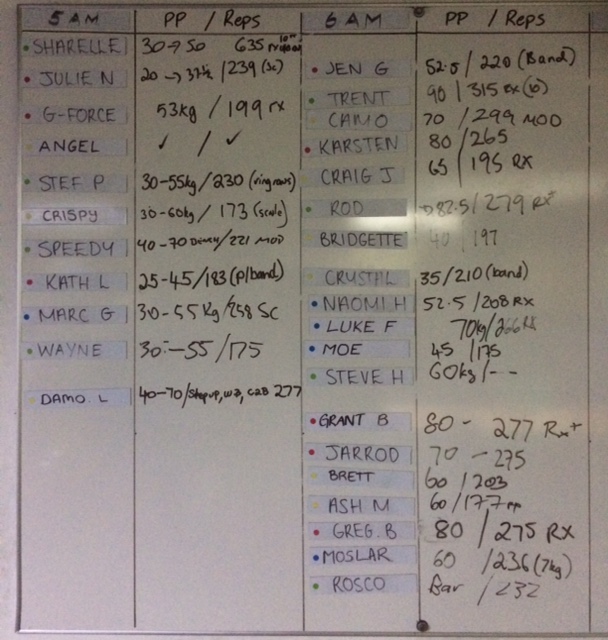 5 AM PP / Reps
SHARELLE 30→50 635
JULIE N 20→37½/239 (sc)
G-FORCE 53kg / 199 rx
ANGEL ✓ / ✓
STEF P 30-55kg/230 (ring rows)
CRISPY 30-60kg / 173 (scale)
SPEEDY 40-70 /221 MOD
KATH L 25-45/183 (p/band)
MARC G 30-55Kg/258 SC
WAYNE 30-55/175
DAMO. L 40-70/Stepup, C2B 277
6 AM PP / Reps
JEN G 52.5/220 (Band)
TRENT 90/315 rx (10)
CAMO 70/299 MOD
KARSTEN 80/265
CRAIG J 65/195 RX
ROD 82.5/279 RX
BRIDGETTE 40 197
CRYSTAL 35/210 (band)
NAOMI H 52.5/208 RX
LUKE F 70kg/266 RX
MOE 45/175
STEVE H 60kg/--
GRANT B 80 - 277 Rx+
JARROD 70 - 275
BRETT 60/203
ASH M 60/177 pp
GREG. B 80/275 RX
MOSLAR 60/236 (7kg)
ROSCO Bar/232